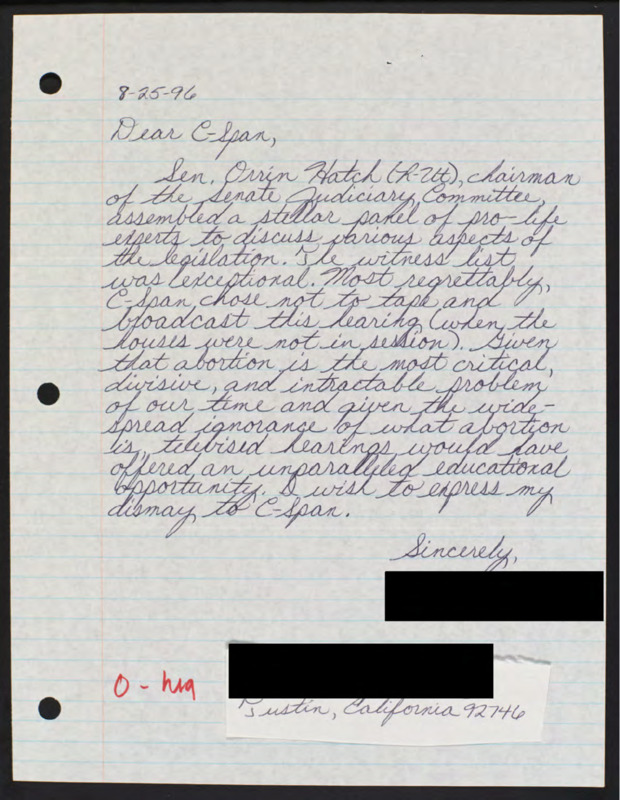 8-25-96
Dear C-Span,
Sen. Orrin Hatch (R-Ut), chairman
of the Senate Judiciary Committee,
assembled a stellar panel of pro-life
experts to discuss various aspects of
the legislation. The witness list
was exceptional. Most regrettably,
C-Span chose not to tape and
broadcast this hearing (when the
houses were not in session). Given
that abortion is the most critical,
divisive, and intractable problem
of our time and given the wide-
spread ignorance of what abortion
is, televised hearings would have
offered an unparalleled educational
opportunity. I wish to express my
dismay to C-Span.
Sincerely,
O - hrg
Tustin, California 92746